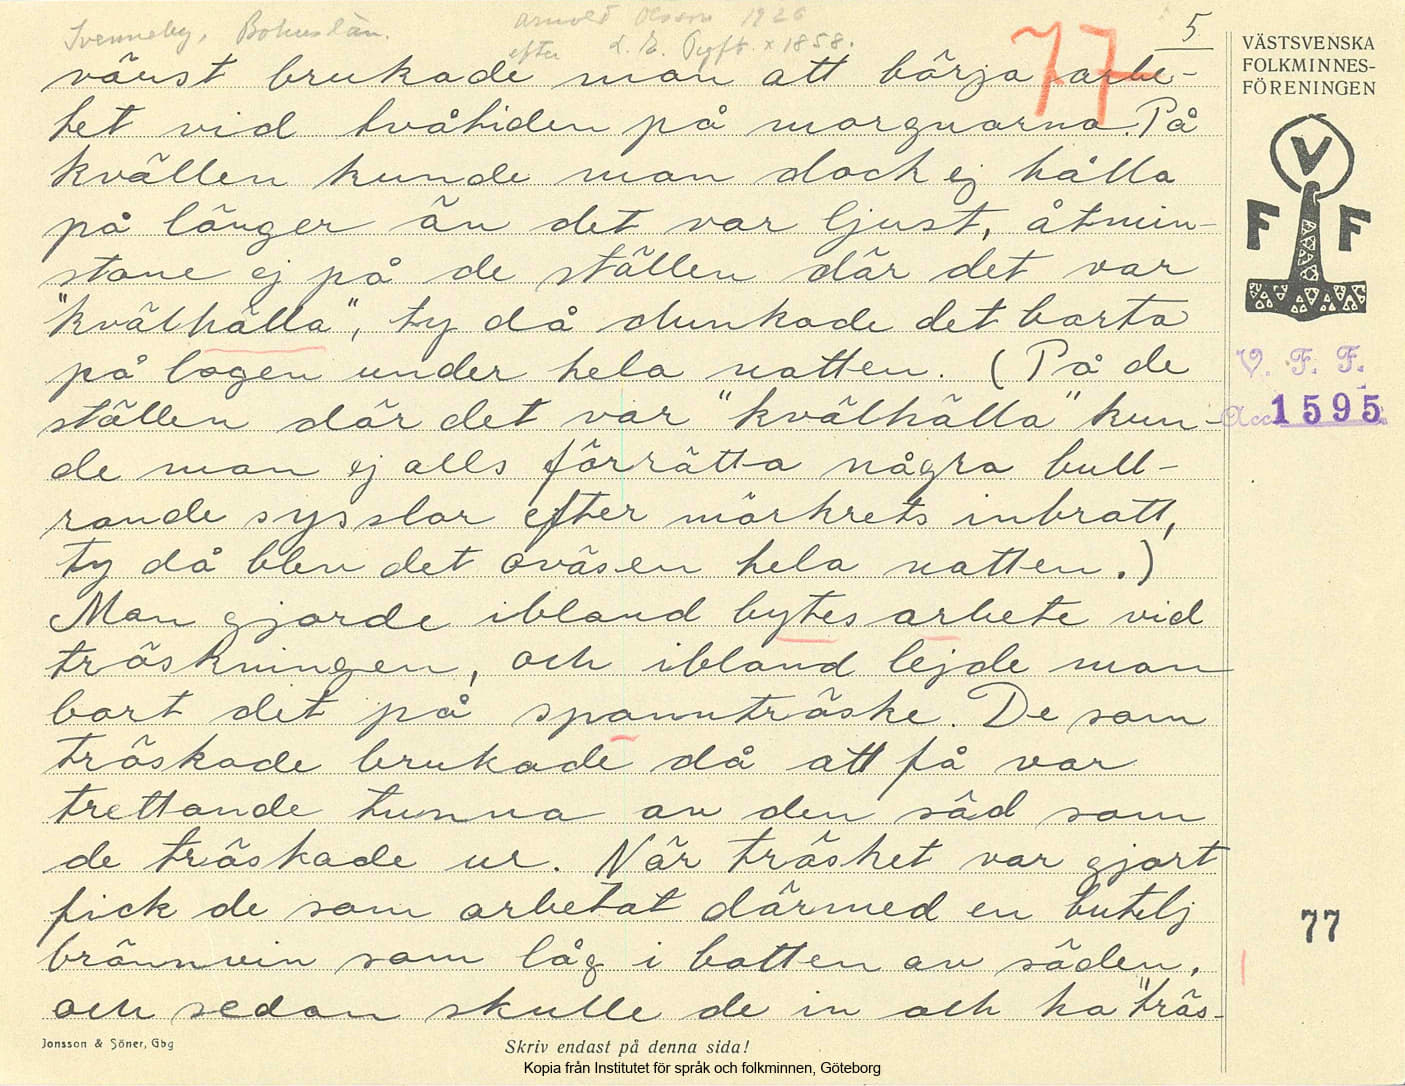 Svenneby, Bohuslän.
Arnold Olsson 1926
efter L. E. x 1858.
77
5
värst brukade man att börja arbe-
tet vid tvåtiden på morgnarna. På
kvällen kunde man dock ej hålla
på länger än det var ljust, åtmin-
stone ej på de ställen där det var
"kvälhälla", ty då dunkade det borta
på logen under hela natten. (På de
ställen där det var "kvälhälla" kun-
de man ej alls förrätta några bull-
rande sysslor efter mörkrets inbrott,
ty då blev det oväsen hela natten.)
Man gjorde ibland bytes arbete vid
tröskningen, och ibland lejde man
bort det på spannträske. De som
tröskade brukade då att få var
trettande tunna av den säd som
de tröskade ur. När trösket var gjort
fick de som arbetat därmed en butelj
brännvin som låg i botten av säden,
och sedan skulle de in och ha "trös-
VÄSTSVENSKA
FOLKMINNES-
FÖRENINGEN
V
F F
V. F. F.
Acc. 1595
77
Jonsson & Söner, Gbg
Skriv endast på denna sida!
Kopia från Institutet för språk och folkminnen, Göteborg